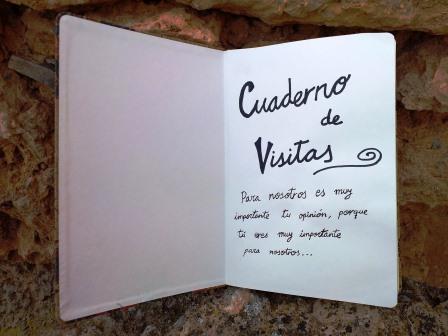 Cuaderno
de
Visitas
Para nosotros es muy
importante tu opinión, porque
tú eres muy importante
para nosotros...